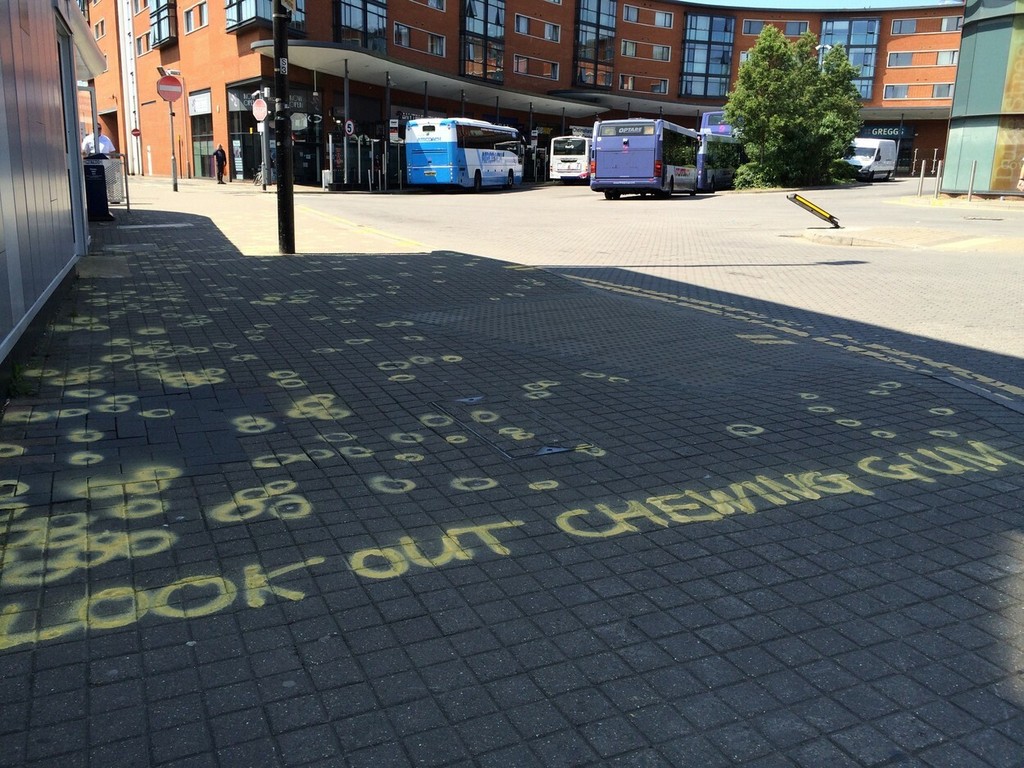 GREGGS
OPTARE
LOOK OUT CHEWING GUM